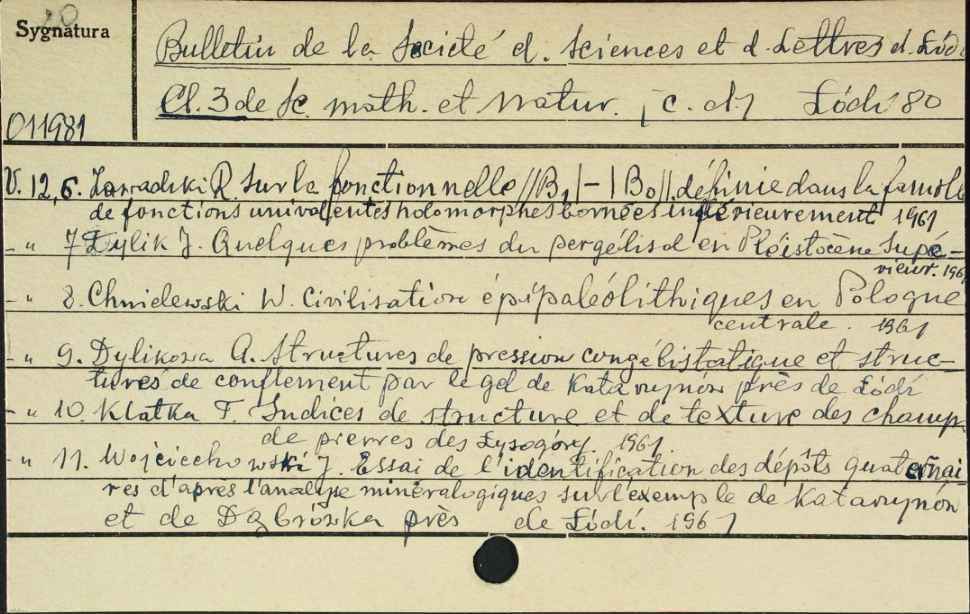 20
Sygnatura
Bulletin de la Société d. Sciences et d. Lettres d. Łódź
Cl. 3 de Sc. math. et natur. [c. d.] Łódź 80
011981
V. 12, 6. Zawadzki R. Sur la fonctionnelle ||B₁|-|B₀|| définie dans la famille
de fonctions univalentes holomorphes bornées inférieurement 1961
-„ 7 Dylik J. Quelques problèmes du pergélisol en Pléistocène Supé-
rieur. 1961
-„ 8. Chmielewski W. Civilisation épipaléolithiques en Pologne
centrale. 1961
-„ 9. Dylikowa A. Structures de pression congélistatique et struc-
tures de conflement par le gel de Katarzynów près de Łódź
-„ 10. Klatka T. Indices de structure et de texture des champ.
de pierres des Łysogóry. 1961
-„ 11. Wojciechowski J. Essai de l'identification des dépôts quaternai-
res d'après l'analyse minéralogiques sur l'exemple de Katarzynów
et de Dąbrówka près de Łódź. 1961